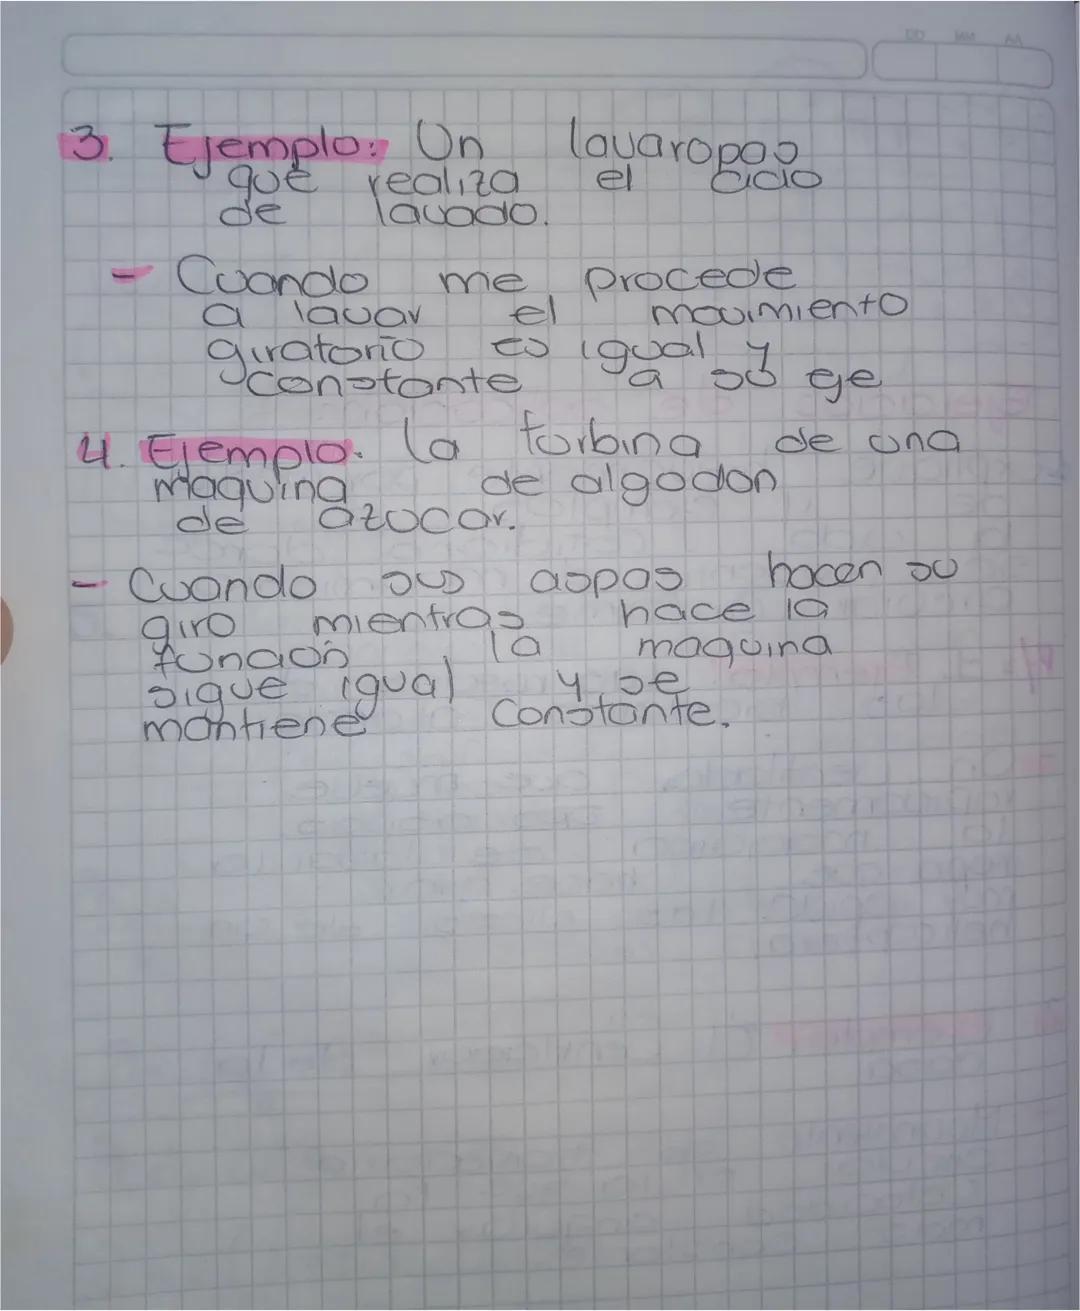 DD MM AA
3. Ejemplo: Un lavaropas
que realiza el ciclo
de lavado.
- Cuando me procede
a lavar el movimiento
giratorio es igual y
constante a su eje
4. Ejemplo. La turbina de una
maquina de algodon
de azucar.
- Cuando sus aspas hacen su
giro mientras hace la
función la maquina
sigue igual y se
mantiene constante.